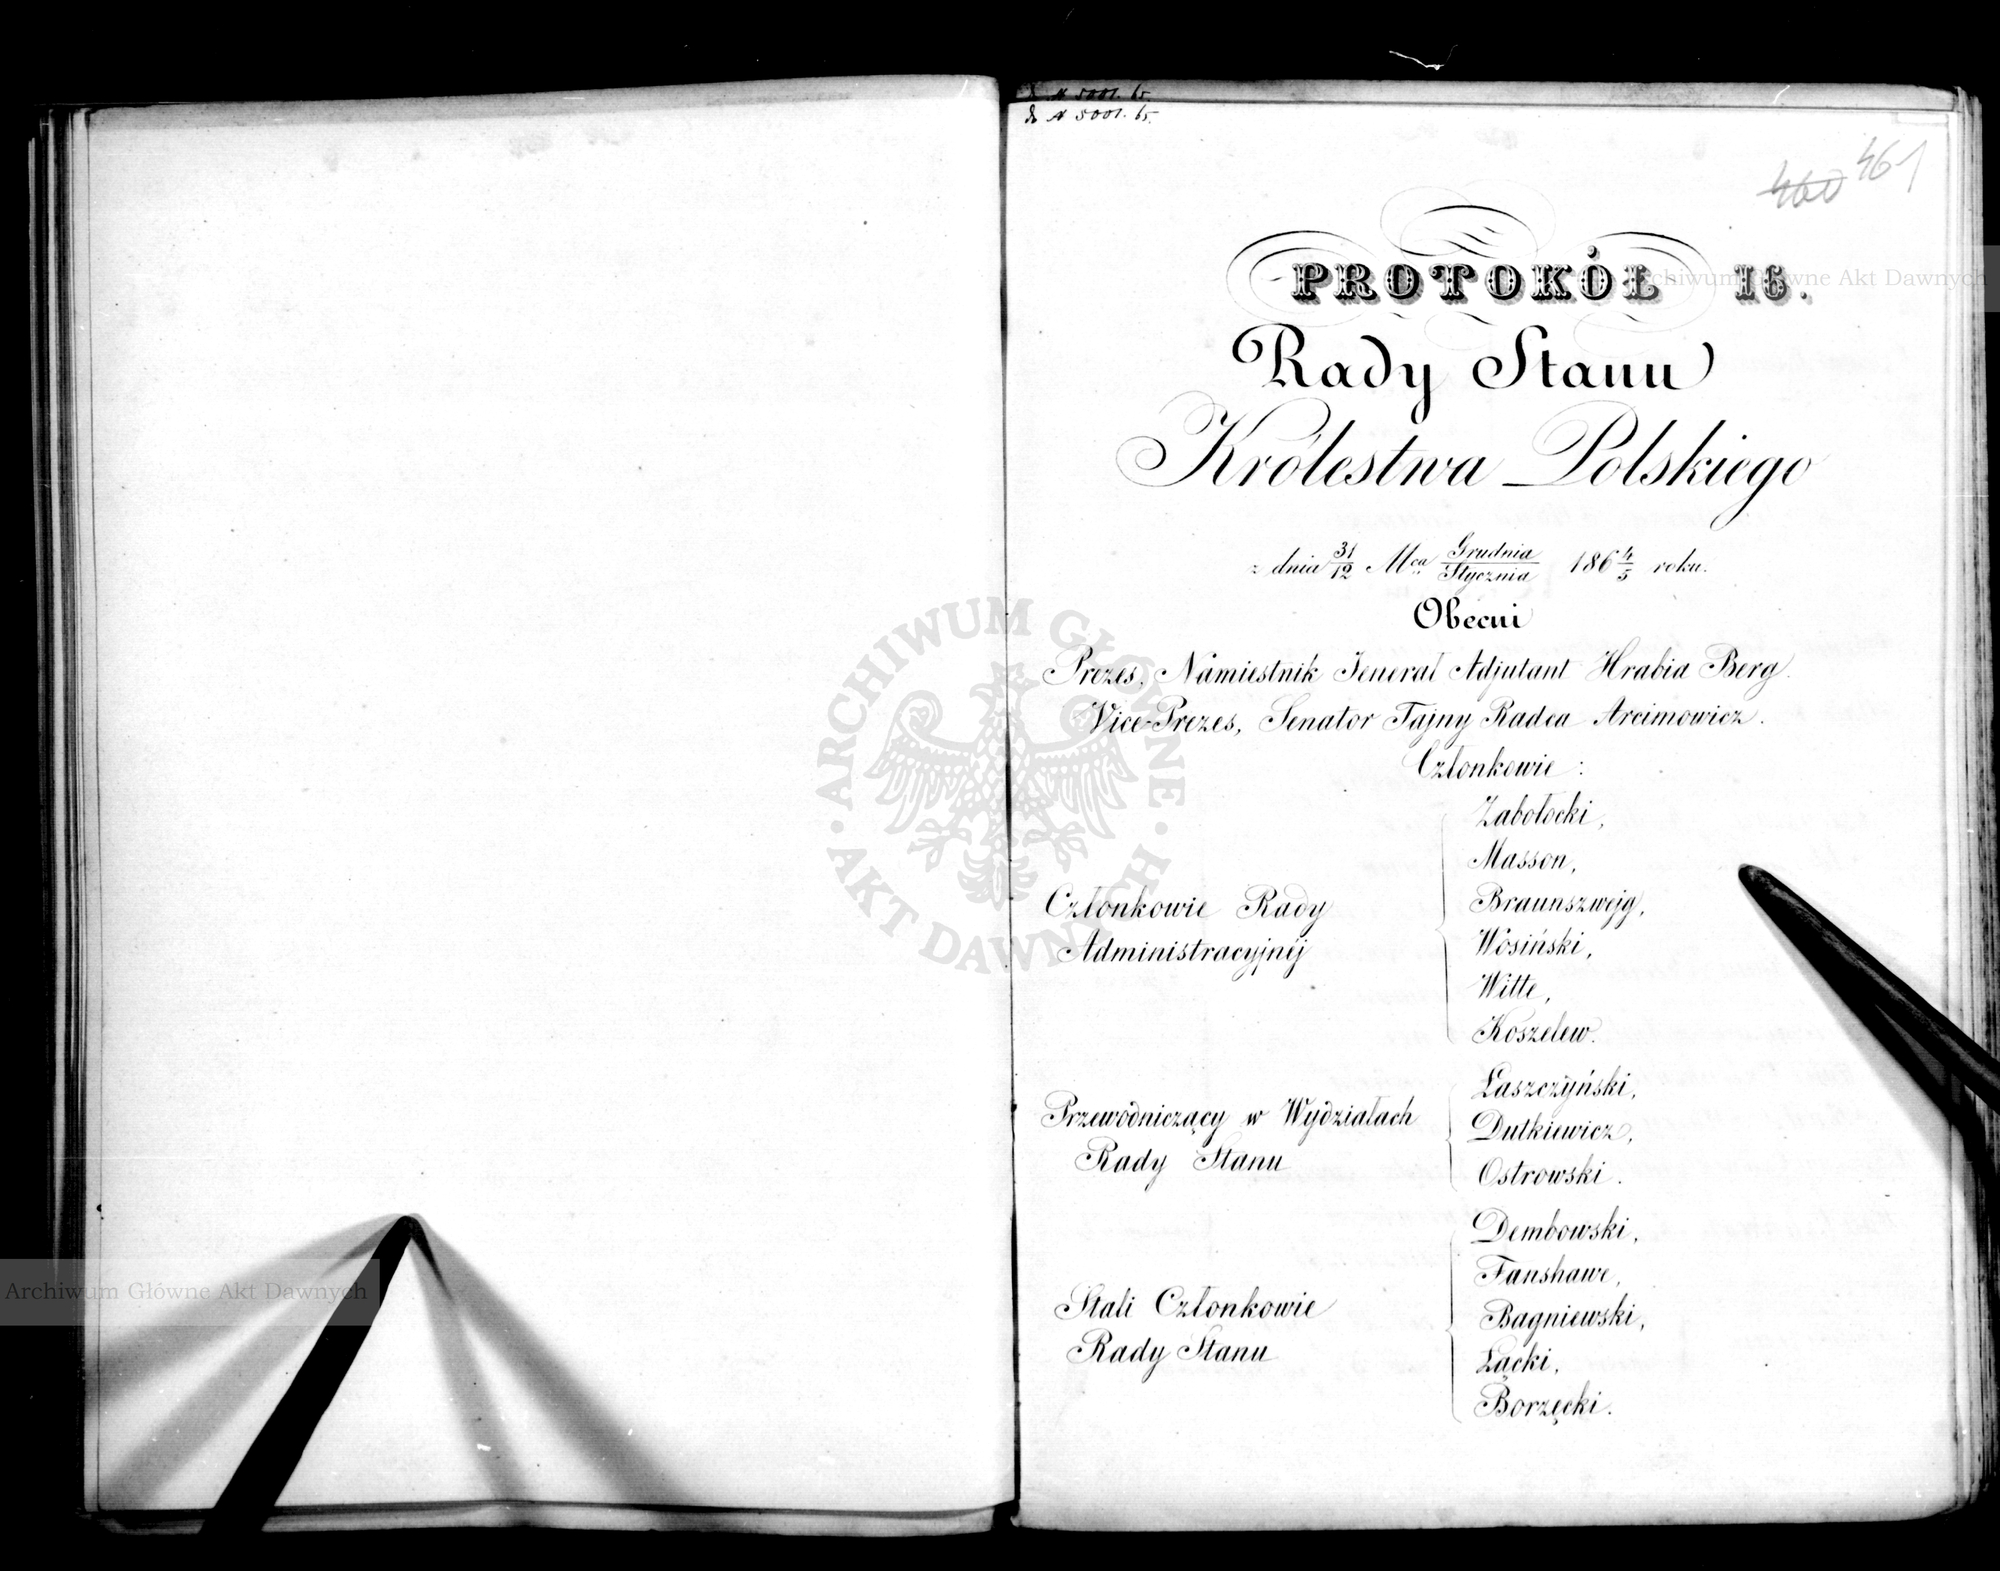 do N 5001. 65.
do N 5001. 65.
460 461
PROTOKÓŁ 16.
Rady Stanu
Królestwa Polskiego
z dnia 31/12 Mca Grudnia/Stycznia 186 4/5 roku.
Obecni
Prezes, Namiestnik Jenerał Adjutant Hrabia Berg.
Vice-Prezes, Senator Tajny Radca Arcimowicz.
Członkowie:
Członkowie Rady
Administracyjnéj
Zabołocki,
Masson,
Braunszwejg,
Wosiński,
Witte,
Koszelew.
Przewodniczący w Wydziałach
Rady Stanu
Łaszczyński,
Dutkiewicz,
Ostrowski.
Stali Członkowie
Rady Stanu
Dembowski,
Fanshawe,
Bagniewski,
Łącki,
Borzęcki.
ARCHIWUM GŁÓWNE
AKT DAWNYCH
Archiwum Główne Akt Dawnych
Archiwum Główne Akt Dawnych